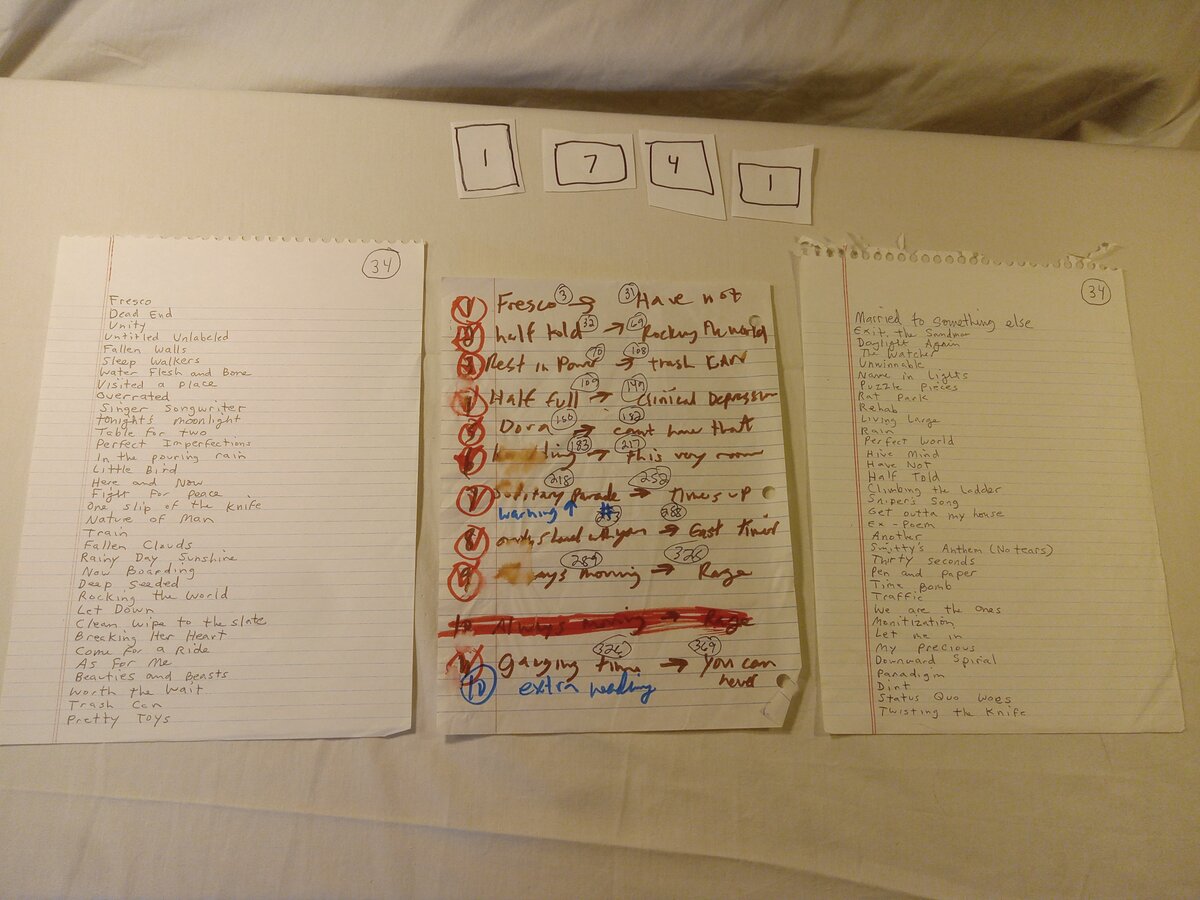 1
7
4
1
34
Fresco
Dead End
Unity
Untitled Unlabeled
Fallen Walls
Sleep Walkers
Water Flesh and Bone
Visited a place
Overrated
Singer Songwriter
tonights moonlight
Table for two
Perfect Imperfections
In the pouring rain
Little Bird
Here and Now
Fight for peace
One slip of the Knife
Nature of Man
Train
Fallen Clouds
Rainy Day Sunshine
Now Boarding
Deep Seeded
Rocking the World
Let Down
Clean wipe to the slate
Breaking Her Heart
Come for a Ride
As For Me
Beauties and Beasts
Worth the Wait
Trash Can
Pretty Toys
Fresco 3 → 31 Have not
half told 32 → 69 Rocking the world
Rest in Power 70 → 108 trash
Half full 109 → Clinical Depression
Dora → 182
183 → 217 this very room
218 252
Solitary parade → times up
warning ↑ #
→ 288 East
289 → 325 Rage
Always moving → Rage
326 349
Gauging time → You can never
10 extra
34
Married to something else
Exit the Sandman
Daylight Again
The Watcher
Unwinnable
Name in Lights
Puzzle Pieces
Rat Park
Rehab
Living Large
Rain
Perfect World
Hive Mind
Have Not
Half Told
Climbing the Ladder
Sniper's Song
Get outta my house
Ex-Poem
Another
Smitty's Anthem (No tears)
Thirty Seconds
Pen and paper
Time Bomb
Traffic
We are the ones
Monitization
Let me in
My Precious
Downward Spiral
Paradigm
Dint
Status Quo Woes
Twisting the Knife